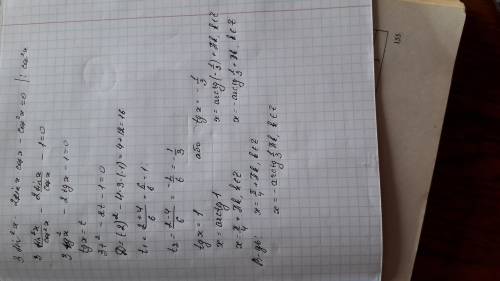 3 sin²x - 2sinx cosx - cos²x = 0 |: cos²x
3 sin²x/cos²x - 2 sinx/cosx - 1 = 0
3 tg²x - 2 tgx - 1 = 0
tgx = t
3t² - 2t - 1 = 0
D = (2)² - 4·3·(-1) = 4 + 12 = 16
t₁ = (2+4)/6 = 6/6 = 1
t₂ = (2-4)/6 = -2/6 = -1/3
tgx = 1 або tgx = -1/3
x = arctg 1 x = arctg(-1/3) + πk, k∈Z
x = π/4 + πk, k∈Z x = -arctg 1/3 + πk, k∈Z
В-дь: x = π/4 + πk, k∈Z
x = -arctg 1/3 πk, k∈Z
155